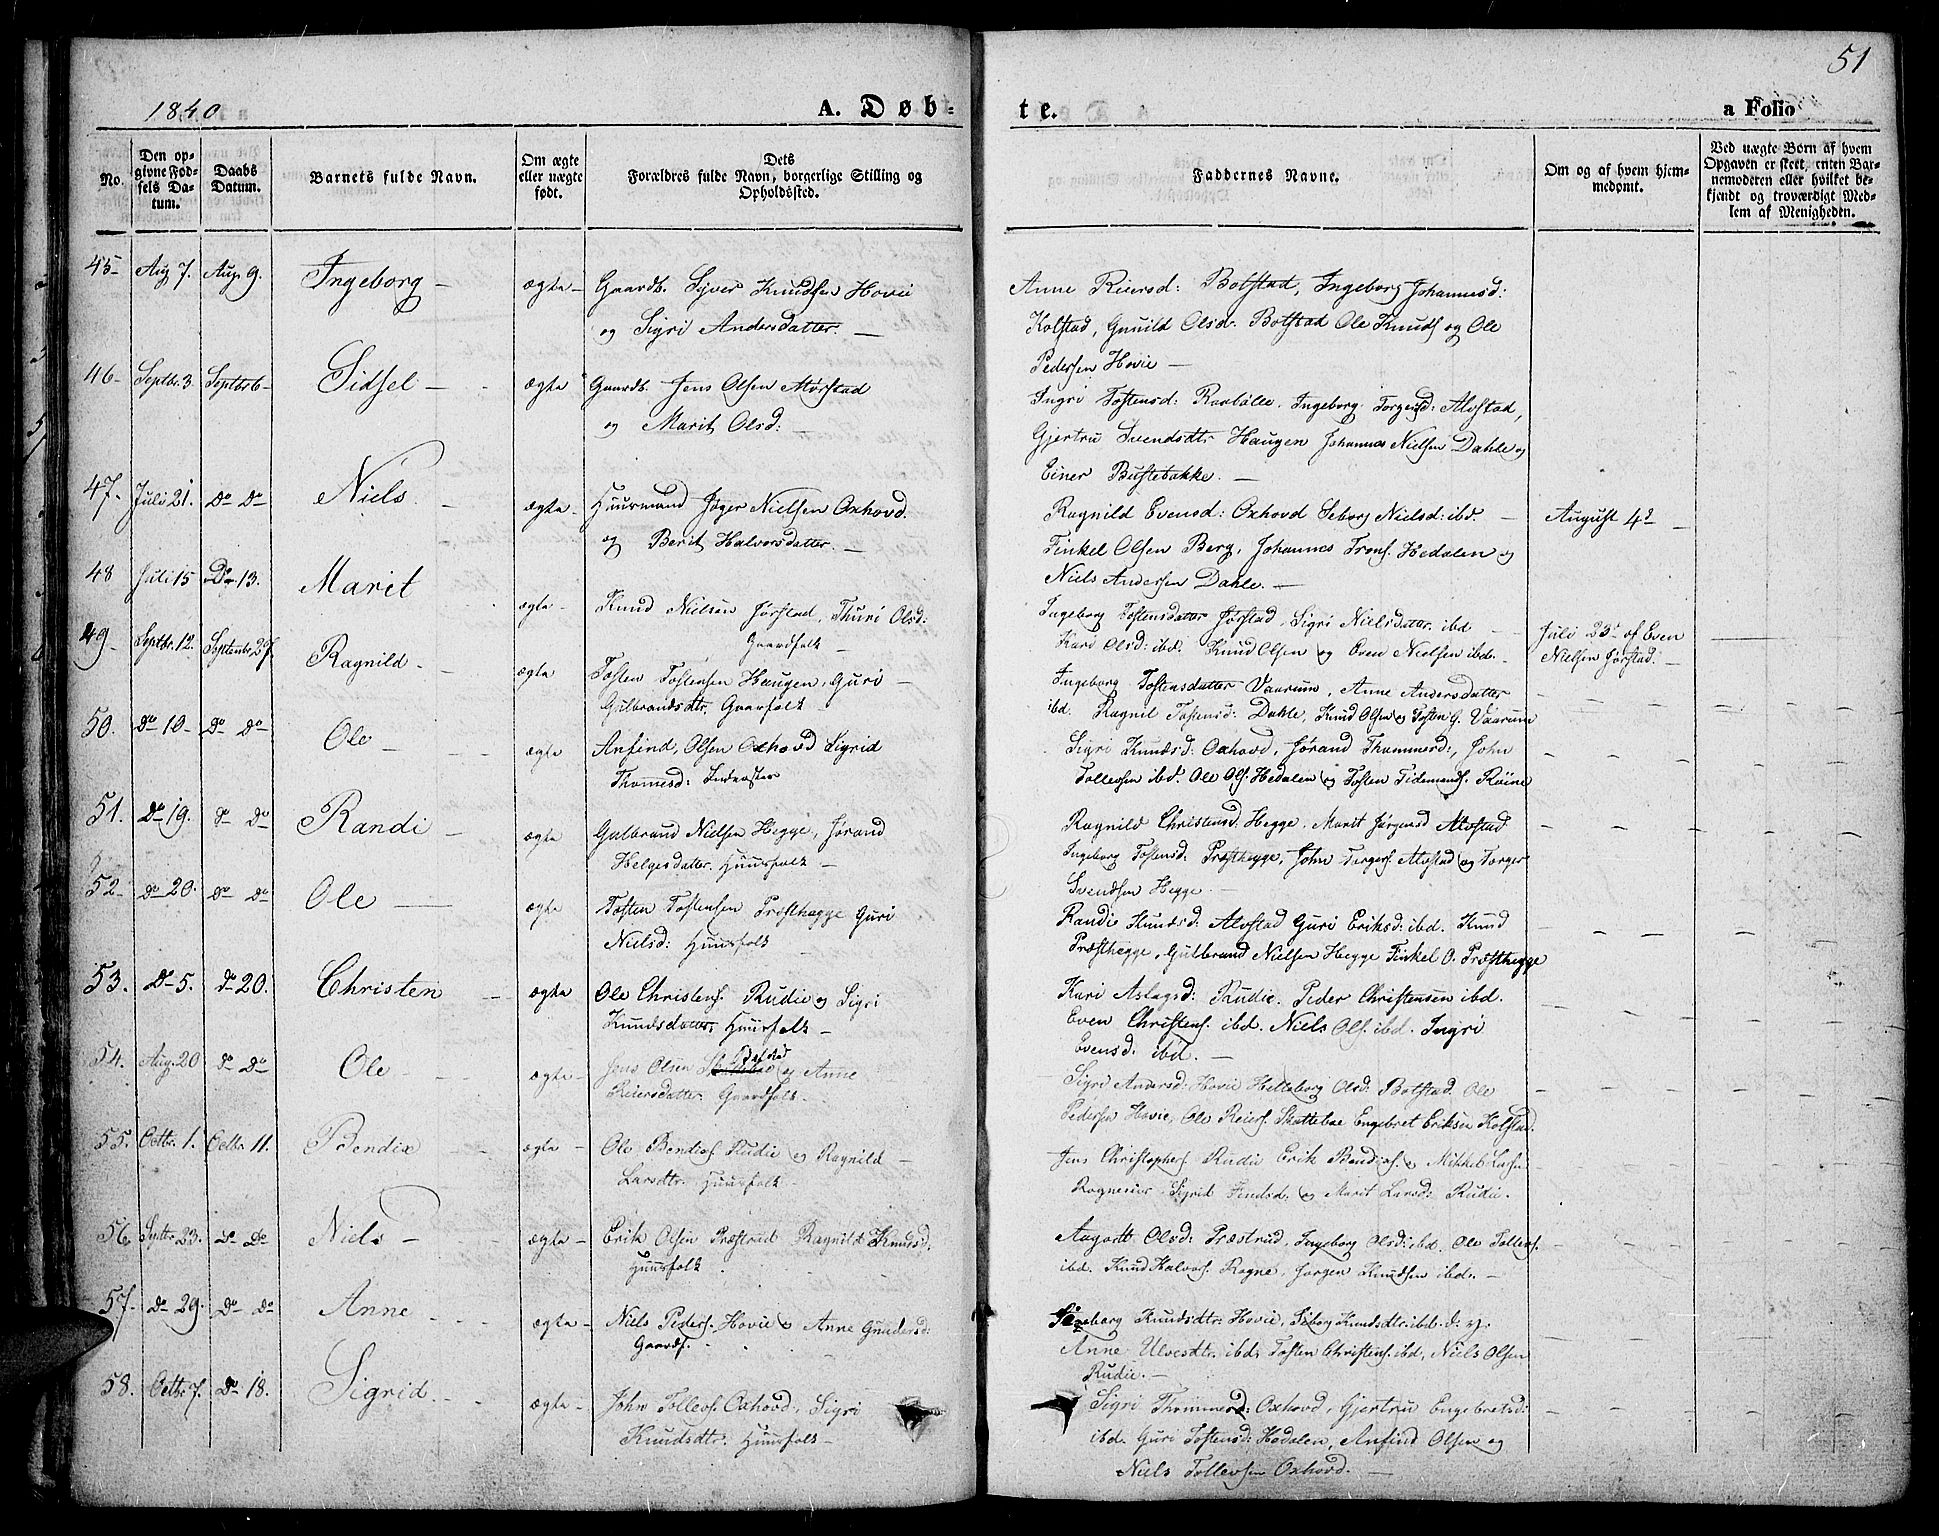 51
1840
A. Døb-
te.
a Folio
No.
Den op-
givne Fød-
sels Da-
tum.
Daabs
Datum.
Barnets fulde Navn.
Om ægte
eller uægte
født.
Dets
Forældres fulde Navn, borgerlige Stilling og
Opholdssted.
Faddernes Navne.
Om og af hvem hjem-
medøbt.
Ved uægte Børn af hvem
Opgaven er skeet, enten Bar-
nemoderen eller hvilket be-
kjendt og troværdigt Med-
lem af Menigheden.
45- Aug 7. Aug. 9. Ingeborg - ægte- Gaardb. Syver Knudsen Hovie
og Sigri Andersdatter. -
Anne Reiersd: Botstad, Ingeborg Johannesd:
Kolstad, Gunild Olsd. Botstad Ole Knuds og Ole
Pedersen Hovie -
46- Septbr. 3. Septbr 6- Sidsel - ægte Gaardb. Jens Olsen Mørstad
og Marit Olsd: -
Ingri Tostensd: Ranbølle. Ingeborg Torgersd: Alvstad,
Gjertru Svendsdtr Haugen Johannes Nielsen Dahle og
Einer Bustebakke. -
47. Juli 21. Do Do Niels - ægte- Huusmand Jøger Nielsen Oxhovd.
og Berit Halvorsdatter. -
Ragnild Evensd: Oxhovd Seborg Nielsd: ibd. -
Finkel Olsen Berg, Johannes Trons. Hedalen og
Niels Andersen Dahle. -
August 4de -
48 Juli 15 Do 13. Marit ægte- Knud Nielsen Jørstad, Thuri Olsd:
Gaardfolk -
Ingeborg Tostensdatter Jørstad, Sigri Nielsdatter ibd -
Kari Olsd: ibd. Knud Olsen og Even Nielsen ibd.
Juli 23de af Even
Nielsen Jørstad. -
49 Septbr. 12. Septembr 27. Ragnild - ægte Tosten Tostensen Haugen, Guri -
Gulbrandsdtr. Gaarfolk -
Ingeborg Tostensdatter Vaarum, Anne Andersdatter
ibd. Ragnil Tostensd: Dahle, Knud Olsen og Tosten G. Vaarum
50. Do 10- Do Do Ole - ægte Anfind Olsen Oxhovd Sigrid
Thomesd: Inderster
Sigri Knudsd: Oxhovd, Jørand Thommesd:, John
Tollevsen ibd. Ole Ols. Hedalen og Tosten Tidemands. Røine
51. Do 19. Do Do Randi - ægte Gulbrand Nielsen Hegge, Jørand
Helgesdatter. Huusfolk -
Ragnild Christensd. Hegge. Marit Jørgensd Alvstad
Ingeborg Tostensd: Præsthegge, John Torgers Alvstad og Torger
Svendsen Hegge. -
52- Do 20. Do Do Ole - ægte Tosten Tostensen Præsthegge Guri
Nielsd: Huusfolk -
Randie Knudsd: Alvstad Guri Eriksd: ibd. Knud
Præsthegge, Gulbrand Nielsen Hegge Finkel O. Præsthegge
53. Do 5. Do 20. Christen - ægte Ole Christens. Rudie og Sigri
Knudsdatter, Huusfolk -
Kari Aslagsd: Rudie. Peder Christensen ibd.
Even Christens. ibd. Niels Ols. ibd. Ingri
Evensd: ibd. -
54. Aug. 20 Do Do Ole - ægte- Jens Olsen Botstad og Anne
Reiersdatter. Gaardfolk -
Sigri Andersd: Hovie Helleborg Olsd: Botstad. Ole
Pedersen Hovie, Ole Reiers. Skattebøe Engebret Eriksen Kolstad.
55. Octbr. 1. Octbr. 11. Bendix - ægte- Ole Bendixs. Rudie og Ragnild -
Larsdtr. Huusfolk -
Jens Christophers. Rudie Erik Bendixs. og Mikkel Larsen
Rogne, Sigrid Findsd. og Marit Larsd: Rudie.
56. Septbr 23. Do Do Niels - ægte- Erik Olsen Præstrud Ragnild Knudsd.
Huusfolk
Aagott Olsd: Præstrud, Ingeborg Olsd: ibd. Ole Tollevs.
ibd. Knud Halvors. Rogne, Jørgen Knudsen ibd. -
57. Do 29. Do Do Anne ægte- Niels Peders. Hovie og Anne Gundersd:
Gaardf.
Ingeborg Knudsdtr: Hovie, Siborg Knudsdtr. ibd. d: y.
Anne Ulvesdtr. ibd, Tosten Christens. ibd, Niels Olsen
Rudie. -
58. Octbr. 7. Do 18. Sigrid. - ægte- John Tollevs. Oxhovd, Sigri
Knudsdtr. Huusfolk -
Sigri Thommesd: Oxhovd, Gjertru Engebretsd:
ibd. Guri Tostensd: Hedalen, Anfind Olsen og
Niels Tollevsen Oxhovd. -